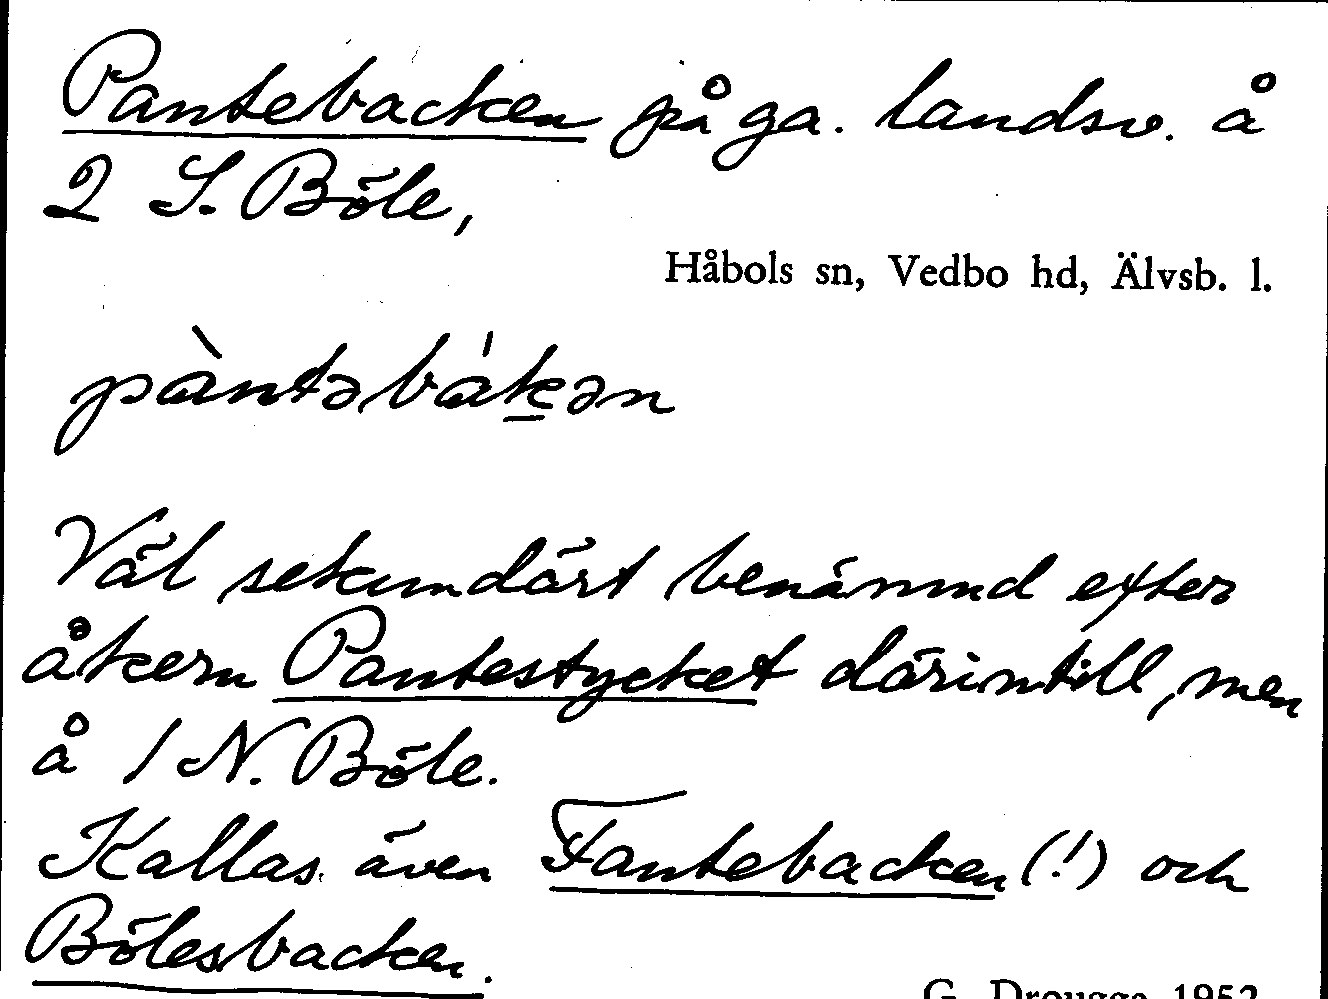 Pantebacken på ga. landsv. å
2 S. Böle,
Håbols sn, Vedbo hd, Älvsb. l.
pàntəbákən
Väl sekundärt benämnd efter
åkern Pantestycket därintill, men
å 1 N. Böle.
Kallas även Fantebacken (!) och
Bölesbacken.
G. Drougge 1952